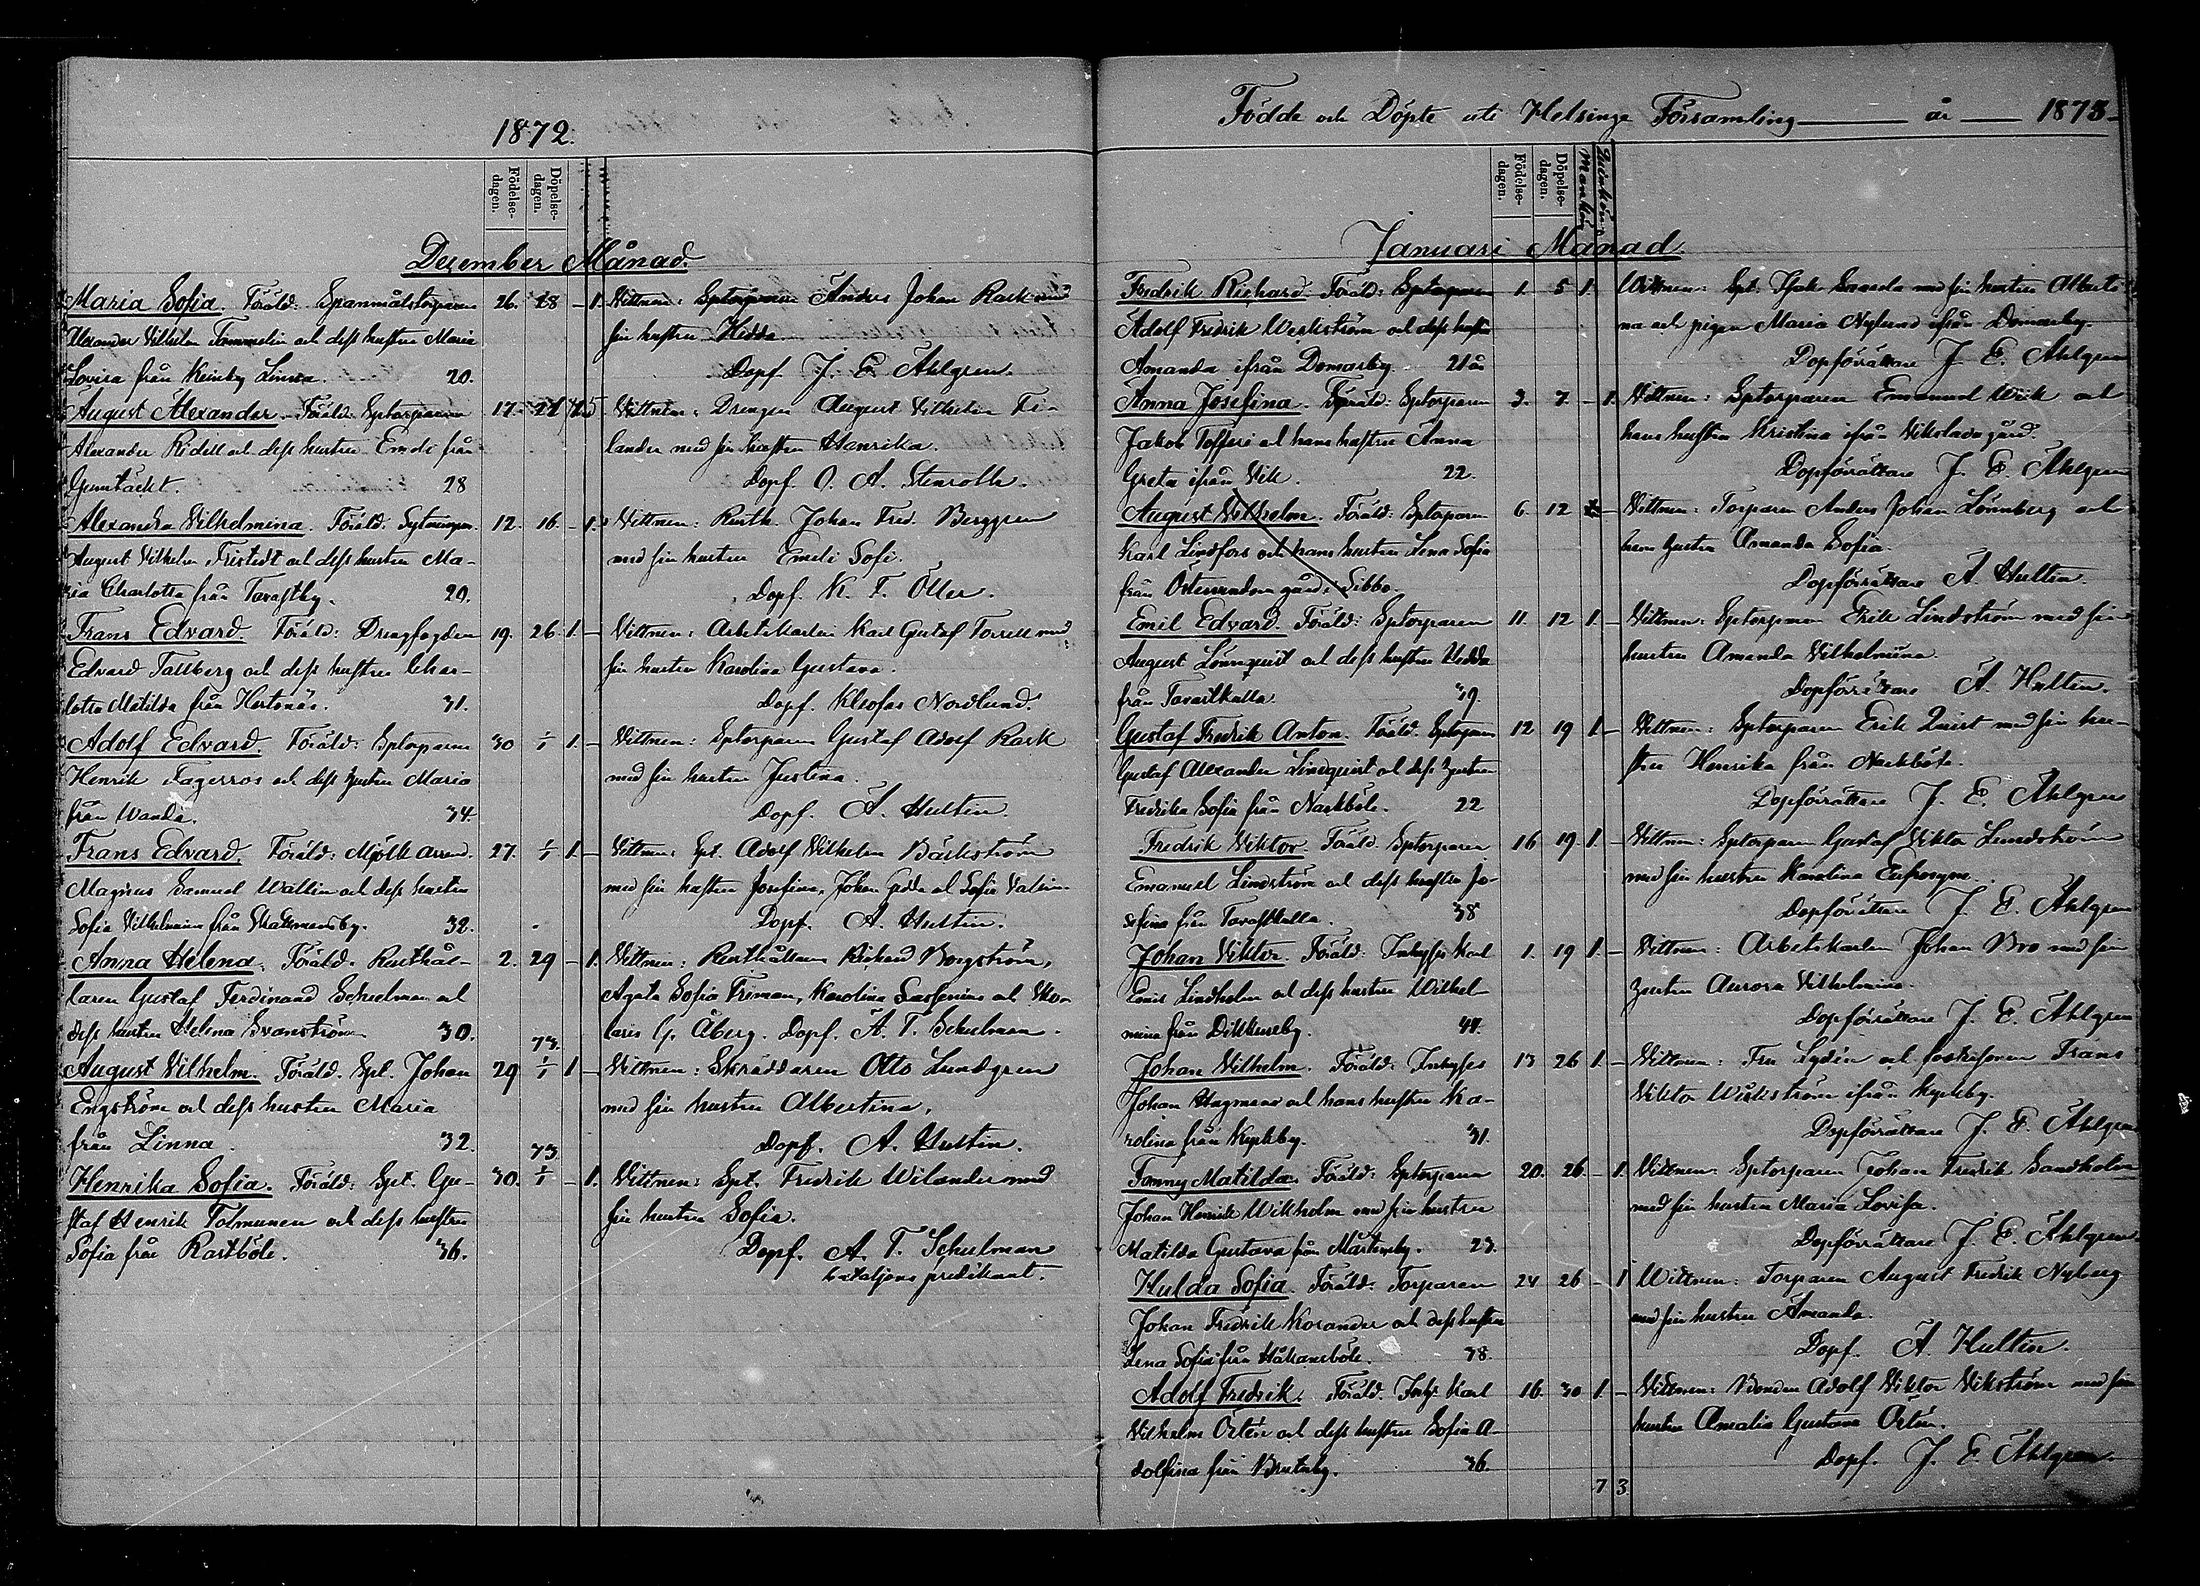 1872.
Födelse-
dagen.
Döpelse-
dagen.
December Månad.
Maria Sofia. Föräld: Spanmålstorparen 26. 28 - 1. Vittnen: Sptorparen Anders Johan Rask med
Alexander Vilhelm Tammelin och dess hustru Maria sin hustru Hedda
Lovisa från Keinby Linna. 20. Dopf. J. E. Ahlgren.
August Alexander. Föräld: Sptorparen 17. 21 Vittnen: Drengen August Vilhelm Fi-
Alexander Ridell och dess hustru Emeli från lander med sin hustru Henrika.
Gumtäckt. 28 Dopf. O. A. Stenroth.
Alexandra Vilhelmina. Föräld: 12. 16. - 1. Vittnen: Rusth. Johan Fred. Berggren
August Vilhelm Fristedt och dess hustru Ma- med sin hustru Emeli Sofi.
ria Charlotta från Tavastby. 20. Dopf. K. T. Öller.
Frans Edvard. Föräld: Drengfogden 19. 26. 1. - Vittnen: Arbetskarlen Karl Gustaf Torrell med
Edvard Tallberg och dess hustru Char- sin hustru Karolina Gustava.
lotta Matilda från Hertonäs. 31. Dopf. Kleofas Nordlund.
Adolf Edvard. Föräld: Sptorparen 30 1/1 1. - Vittnen: Sptorparen Gustaf Adolf Rask
Henrik Fagerros och dess hustru Maria med sin hustru Justina.
från Wanda. 34. Dopf. A. Hultin.
Frans Edvard. Föräld: Mjölk arrend. 27. 1/1 1. - Vittnen: Spt. Adolf Vilhelm Bäckström
Magnus Samuel Wallin och dess hustru med sin hustru Josefina, Johan Gedda och Sofia
Sofia Vilhelmina från 32. Dopf. A. Hultin.
Anna Helena. Föräld. Rusthål- 2. 29 - 1. Vittnen: Rusthållaren Rickard Borgström,
laren Gustaf Ferdinand Schulman och Agata Sofia Friman, Karolina och Sko-
dess hustru Helena Svanström 30. laris G. Åberg. Dopf. A. T. Schulman.
73.
August Vilhelm. Föräld. Spt. Johan 29 1/1 1 Vittnen: Skräddaren Otto Lundgren
Engström och dess hustru Maria med sin hustru Albertina.
från Linna. 32. Dopf. A. Hultin.
73
Henrika Sofia. Föräld: Spt. Gu- 30. 1/1 - 1. Vittnen: Spt. Fredrik Wilander med
staf Henrik Tolmunen och dess hustru sin hustru Sofia.
Sofia från Rastböle. 36. Dopf. A. T. Schulman
bataljons predikant.
Födde och Döpte uti Helsinge Församling år 1873
Födelse-
dagen.
Döpelse-
dagen.
Mankön
Quinkön
Januari Månad
Fredrik Richard. Föräld: Sptorparen 1. 5 1. Wittnen: Spt: Isak med sin hustru Alberti-
Adolf Fredrik Werkström och dess hustru na och pigan Maria Nylund ifrån Domarby.
Amanda ifrån Domarby 21 år Dopförrättare J. E. Ahlgren
Anna Josefina. Föräld: Sptorparen 3. 7. - 1. Vittnen: Sptorparen Emanuel Wiik och
Jakob Tofferi och hans hustru Anna hans hustru Kristina ifrån Vikslava gård.
Greta ifrån Vik. 22. Dopförrättare J. E. Ahlgren
August Vilhelm. Föräld: Sptorparen 6. 12 Vittnen: Torparen Anders Johan Lönnberg och
Karl Lindfors och hans hustru Lena Sofia hans hustru Amanda Sofia.
från Östersundom gård i Sibbo. Dopförrättare A. Hultin.
Emil Edvard. Föräld: Sptorparen 11. 12 1. - Vittnen: Sptorparen Erik Lindström med sin
August Lönnquist och dess hustru Hedda hustru Amanda Vilhelmina.
från Tavastkulla 39. Dopförrättare A. Hultin.
Gustaf Fredrik Anton. Föräld. Sptorparen 12 19 1. - Vittnen: Sptorparen Erik Quist med sin hu-
Gustaf Alexander Lindquist och dess hustru stru Henrika från Nackböle.
Fredrika Sofia från Nackböle. 22 Dopförrättare J. E. Ahlgren
Fredrik Viktor. Föräld. Sptorparen 16 19 1. - Vittnen: Sptorparen Gustaf Viktor Lundström
Emanuel Lindström och dess hustru Jo- med sin hustru Karolina Eufrosyne.
sefina från Tavastkulla. 38 Dopförrättare J. E. Ahlgren
Johan Viktor. Föräld: Inhyses Karl 1. 19 1. - Vittnen: Arbetskarlen Johan Bro med sin
Emil Lindholm och dess hustru Wilhel- hustru Aurora Vilhelmina.
mina från Dickursby. 44. Dopförrättare J. E. Ahlgren
Johan Vilhelm. Föräld: Inhyses 13 26 1. - Vittnen: Fru Lydén och fosterson Frans
Johan Hagman och hans hustru Ka- Viktor Wickström ifrån Kyrkby.
rolina från Kyrkby. 31. Dopförrättare J. E. Ahlgren
Fanny Matilda. Föräld: Sptorparen 20. 26. - 1. Vittnen: Sptorparen Johan Fredrik Sandholm
Johan Henrik Wikholm med sin hustru med sin hustru Maria Lovisa.
Matilda Gustava från Mårtensby. 23. Dopförrättare J. E. Ahlgren
Hulda Sofia. Föräld: Torparen 24 26 - 1 Wittnen: Torparen August Fredrik Nyberg
Johan Fredrik Korander och dess hustru med sin hustru Amanda.
Lena Sofia från Håkansböle. 38. Dopf. A. Hultin.
Adolf Fredrik. Föräld. Inhy. Karl 16. 30 1. - Vittnen: Bonden Adolf Viktor Vikström med sin
Vilhelm Örtén och dess hustru Sofia A- hustru Amalia Gustava Örtén.
dolfina från 36. Dopf. J. E. Ahlgren.
7 3.